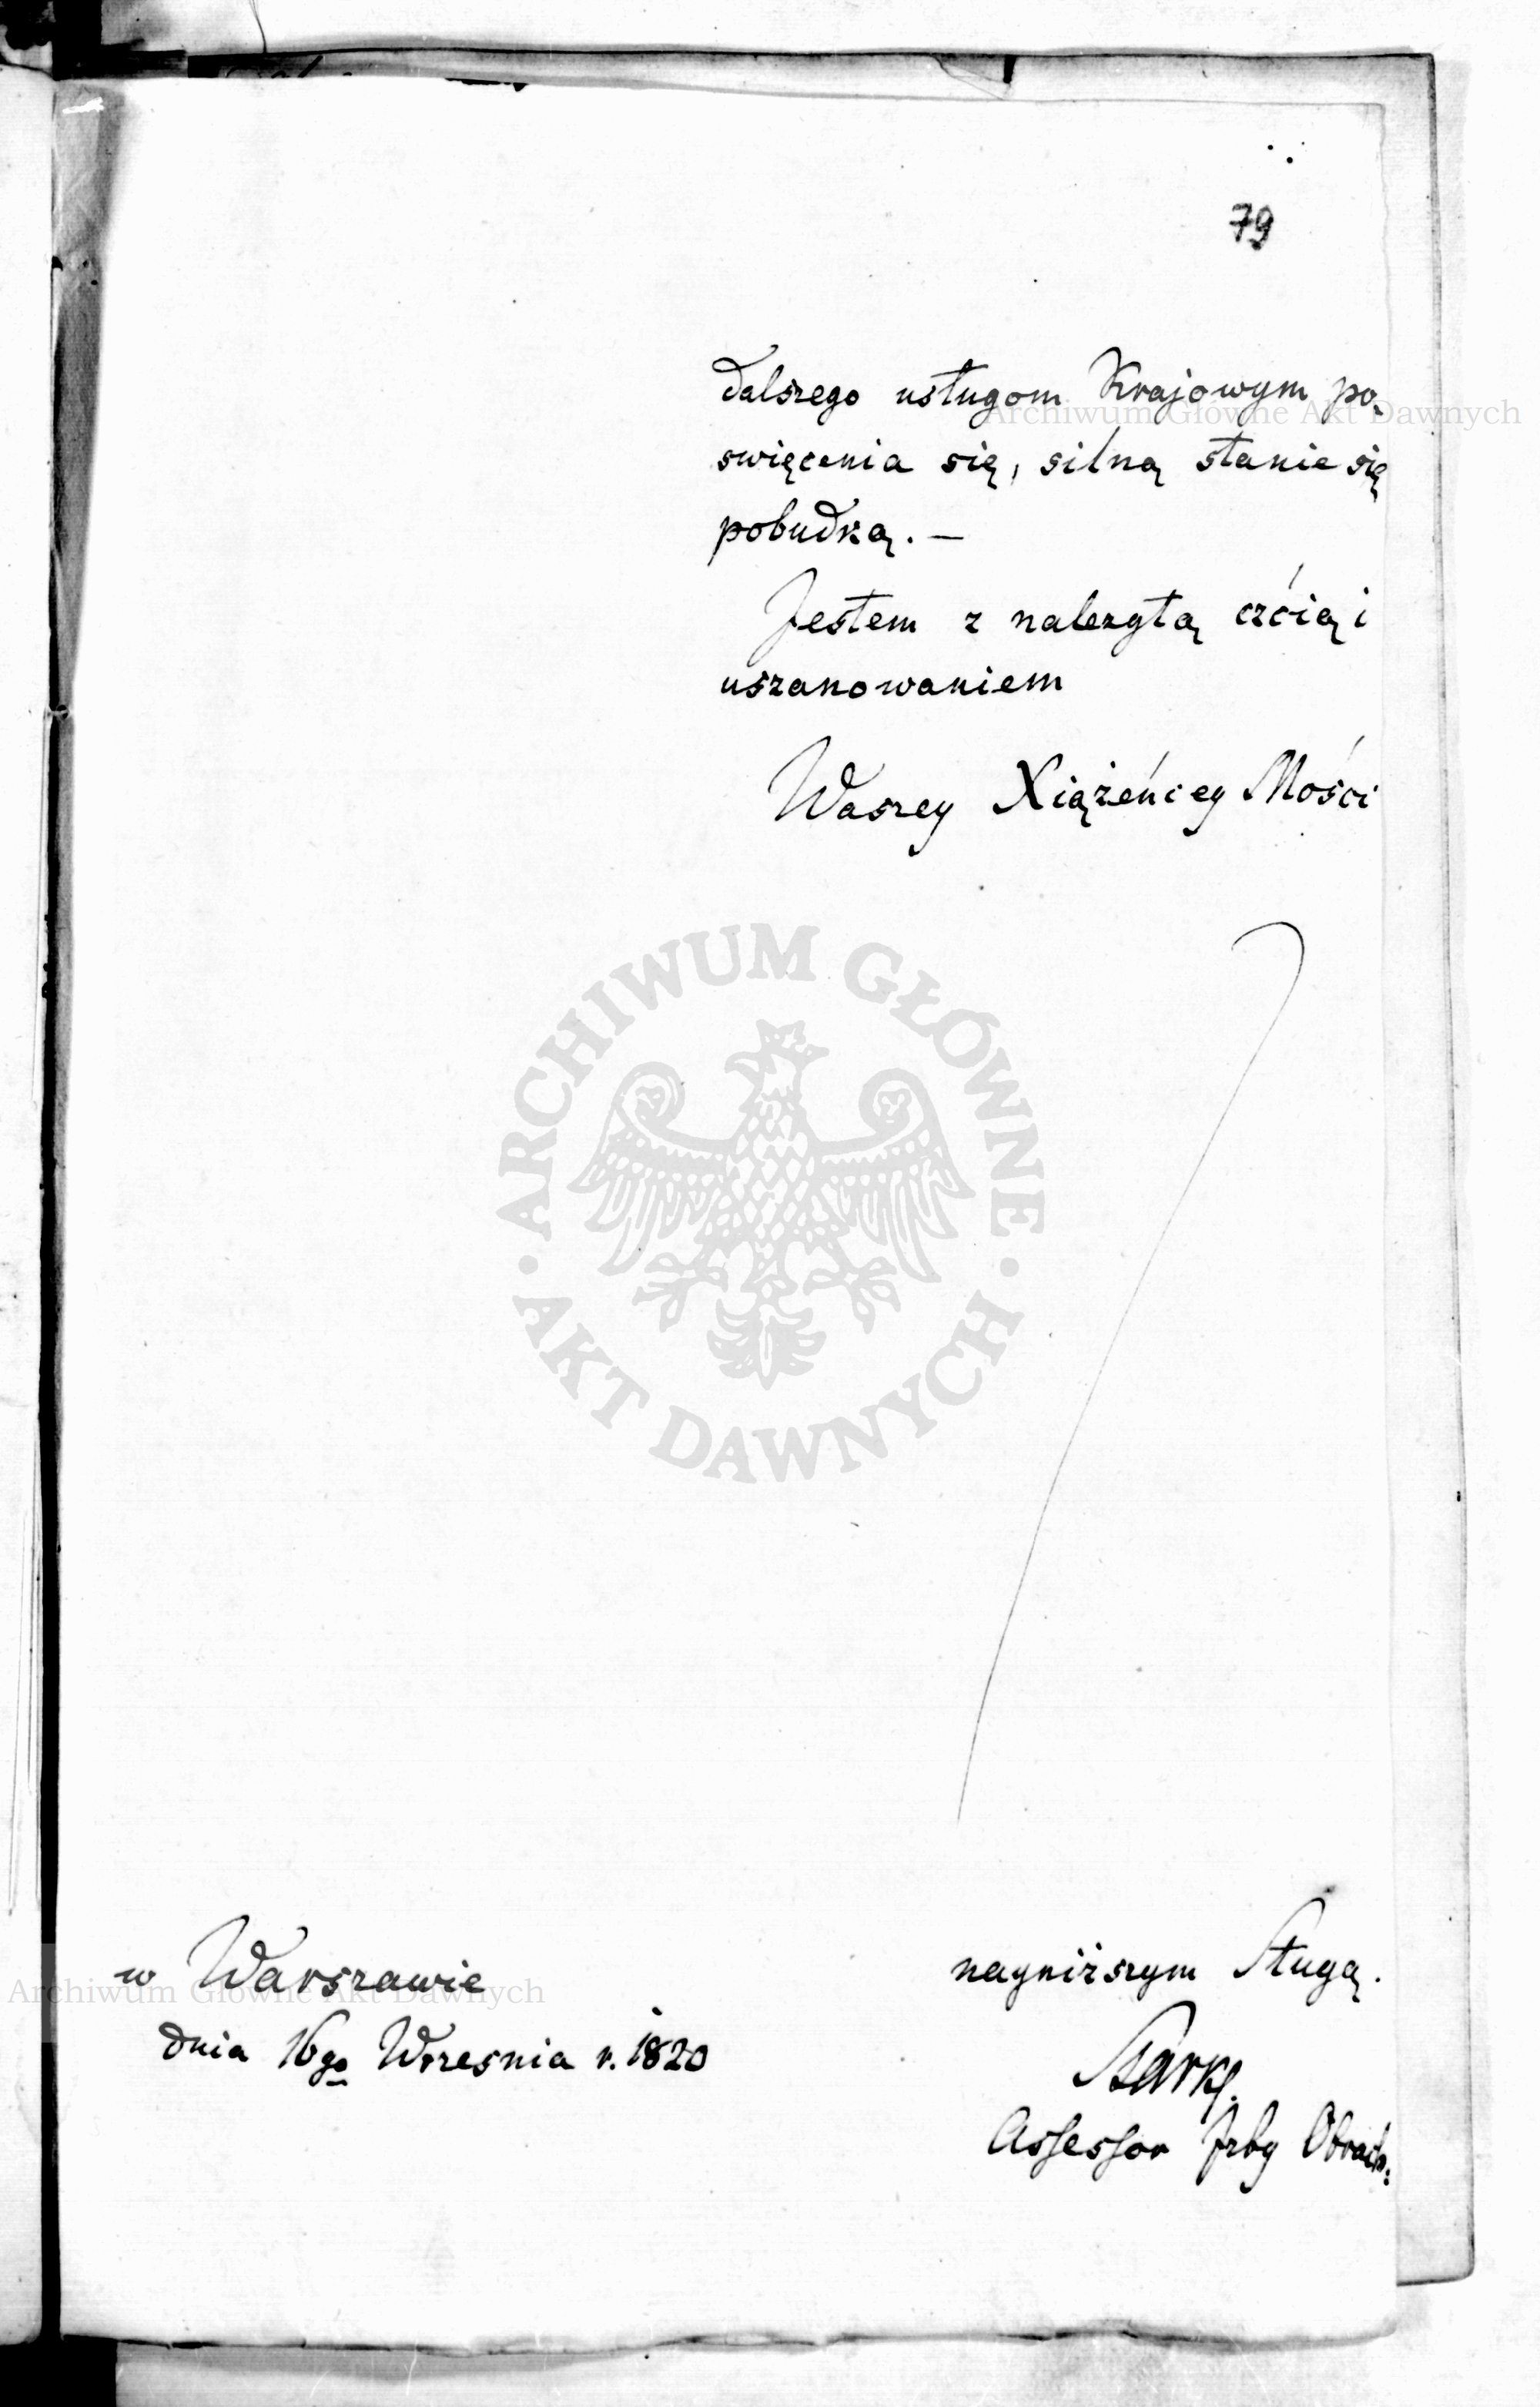 79
dalszego usługom Krajowym po-
swięcenia się, silną stanie się
pobudką. —
Jestem z nalezytą czcią i
uszanowaniem
Waszey Xiążeńcey Mości
w Warszawie
dnia 16go Wrzesnia r. 1820
nayniższym Sługą.
Assessor Izby Obrach:
Archiwum Główne Akt Dawnych
ARCHIWUM GŁÓWNE
AKT DAWNYCH
Archiwum Główne Akt Dawnych